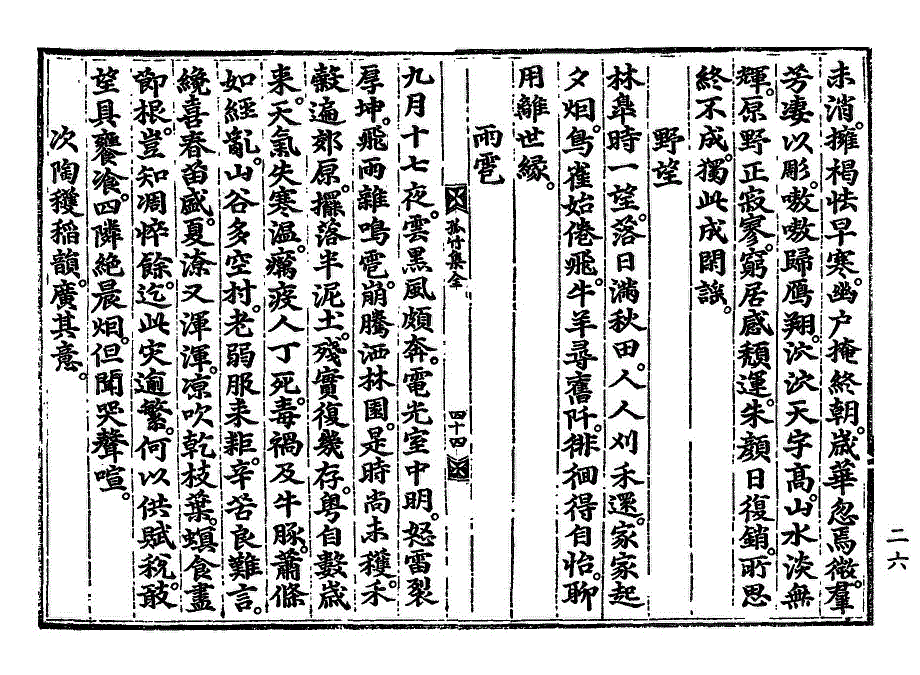 未消。擁褐怯早寒。幽户掩終朝。歲華忽焉徵。羣
芳凄以彫。嗷嗷歸鴈翔。泬泬天宇高。山水淡無
輝。原野正寂寥。窮居感頹運。朱顔日復銷。所思
終不成。獨此成閑謠。
野望
林皐時一望。落日滿秋田。人人刈禾還。家家起
夕烟。鳥雀始倦飛。牛羊尋舊阡。徘徊得自怡。聊
用離世緣。
孤竹集全
四十四
雨雹
九月十七夜。雲黑風頗奔。電光室中明。怒雷裂
厚坤。飛雨雜鳴雹。崩騰洒林園。是時尚未穫。禾
穀遍郊原。擺落半泥土。殘實復幾存。粤自數歲
来。天氣失寒溫。癘疫人丁死。毒禍及牛豚。蕭條
如經亂。山谷多空村。老弱服耒耟。辛苦良難言。
纔喜春苗盛。夏潦又渾渾。凉吹乾枝葉。螟食盡
節根。豈知凋悴餘。迄此灾逾繁。何以供賦稅。敢
望具饔飡。四隣絶晨烟。但聞哭聲喧。
次陶穫稲韻。廣其意。
二六